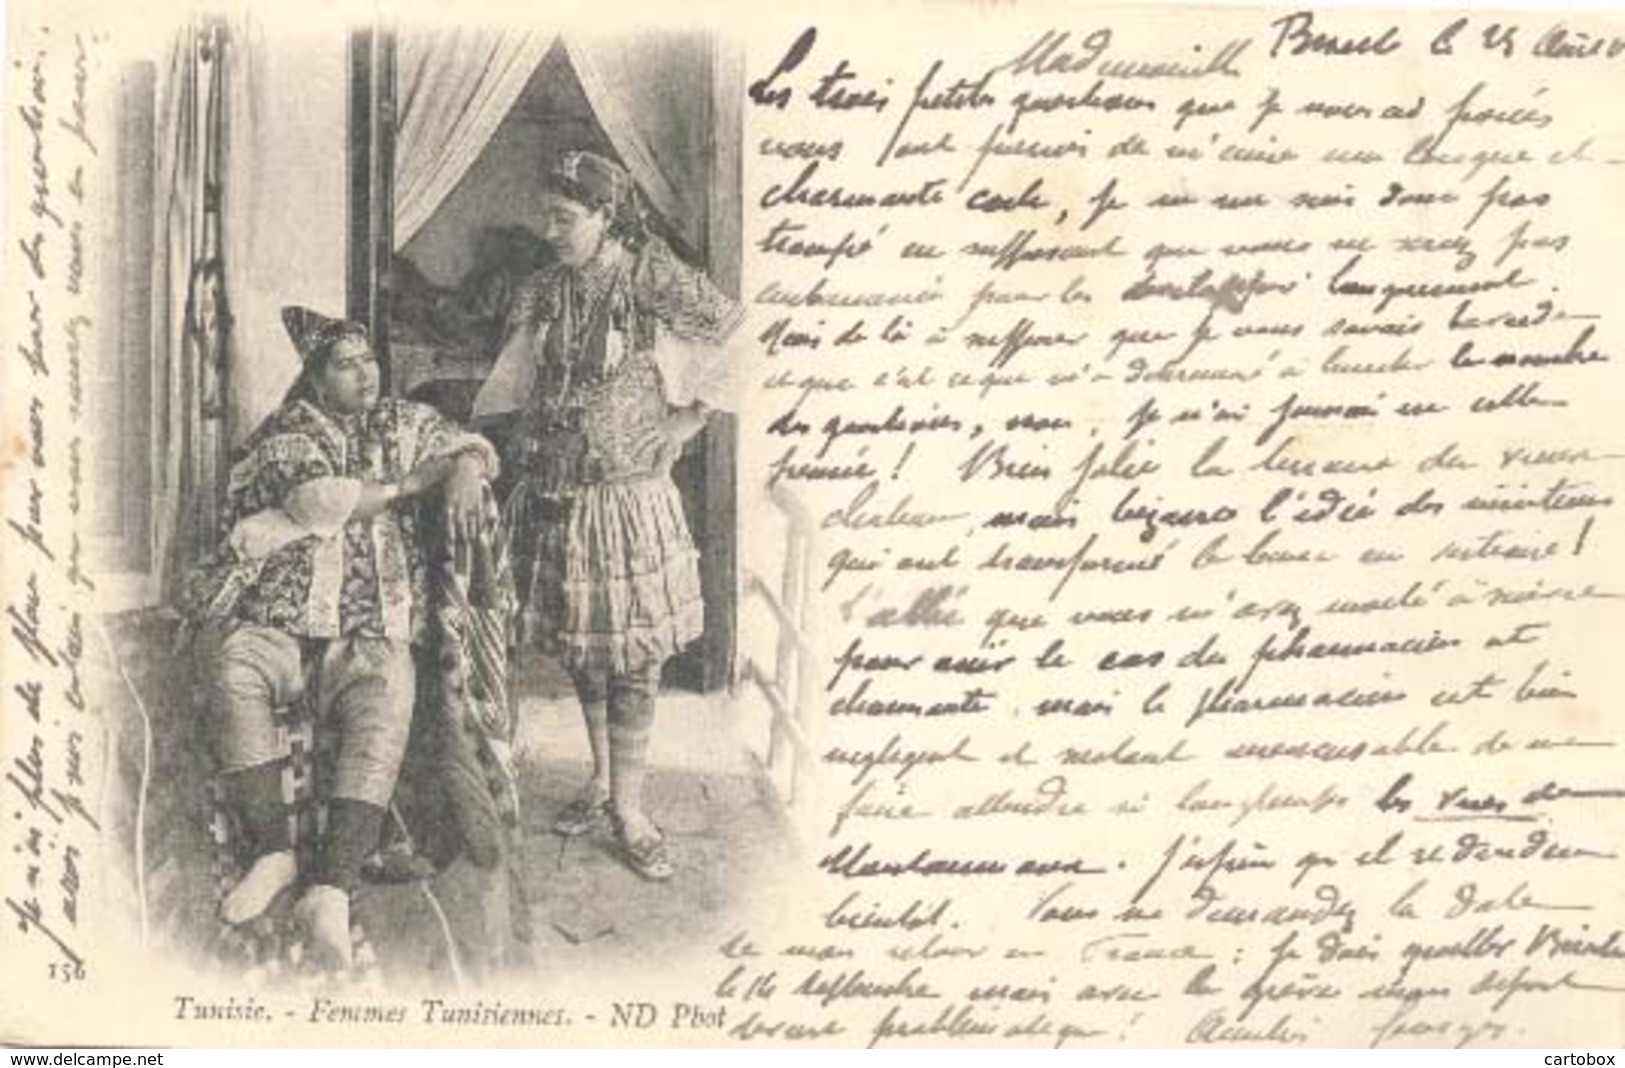 Bizerte le 25 Août
Mademoiselle
Les trois petites questions que je vous ai posées
vous ont permis de m'écrire une longue et
charmante carte, je ne me suis donc pas
trompé en supposant que vous ne seriez pas
embarrassée pour les développer longuement.
Mais de là à supposer que je vous savais bavarde
et que c'est ce que m'a déterminé à limiter le nombre
des questions, non, je n'ai jamais eu cette
pensée! Bien jolie la terrasse du vieux
château, mais bizarre l'idée des
qui ont transformé la
L'allée que vous m'avez invité à suivre
pour voir le cas du pharmacien est
charmante, mais le pharmacien est bien
négligent et surtout inexcusable de me
faire attendre si longtemps les vues de
. J'espère qu'il se décidera
bientôt. Vous me demandez la date
de mon retour en France : je dois quitter Bizerte
le 14 septembre, mais avec la grève mon départ
devient problématique! Amitiés
Je n'ai plus de place pour vous poser des questions.
aussi je suis certain que vous saurez vous en passer.
156
Tunisie. - Femmes Tunisiennes. - ND Phot
delcampe.net
cartobox